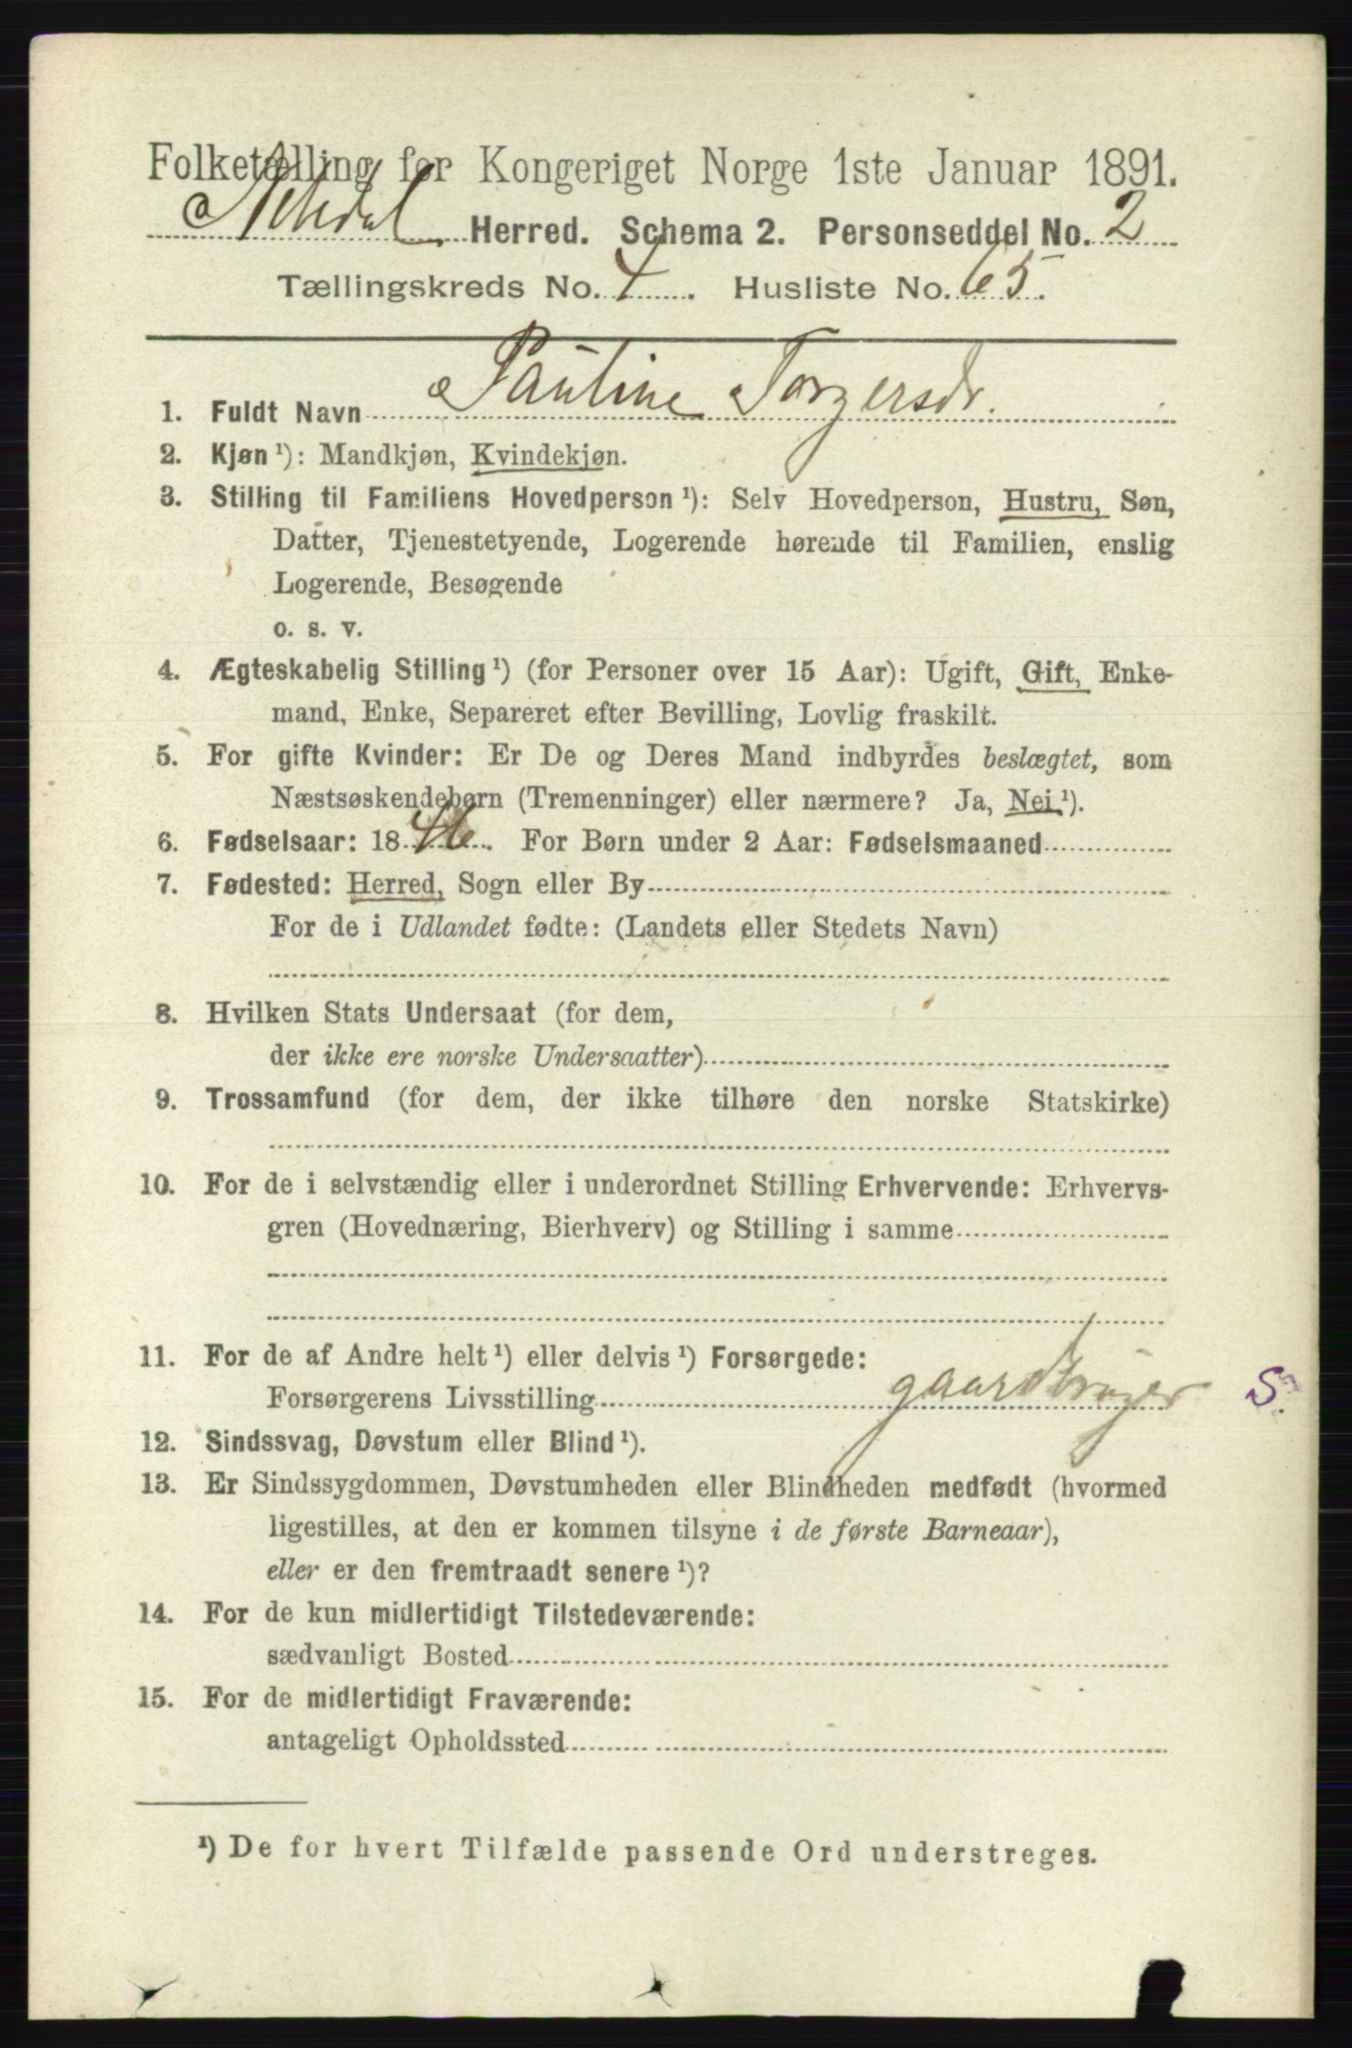 Folketælling for Kongeriget Norge 1ste Januar 1891.
Herred. Schema 2. Personseddel No. 2
Tællingskreds No. 4. Husliste No. 65.
1. Fuldt Navn Pauline Torgersdr.
2. Kjøn ¹): Mandkjøn, Kvindekjøn.
3. Stilling til Familiens Hovedperson ¹): Selv Hovedperson, Hustru, Søn,
Datter, Tjenestetyende, Logerende hørende til Familien, enslig
Logerende, Besøgende
o. s. v.
4. Ægteskabelig Stilling ¹) (for Personer over 15 Aar): Ugift, Gift, Enke-
mand, Enke, Separeret efter Bevilling, Lovlig fraskilt.
5. For gifte Kvinder: Er De og Deres Mand indbyrdes beslægtet, som
Næstsøskendebørn (Tremenninger) eller nærmere? Ja, Nei ¹).
6. Fødselsaar: 1846. For Børn under 2 Aar: Fødselsmaaned
7. Fødested: Herred, Sogn eller By
For de i Udlandet fødte: (Landets eller Stedets Navn)
8. Hvilken Stats Undersaat (for dem,
der ikke ere norske Undersaatter)
9. Trossamfund (for dem, der ikke tilhøre den norske Statskirke)
10. For de i selvstændig eller i underordnet Stilling Erhvervende: Erhvervs-
gren (Hovednæring, Bierhverv) og Stilling i samme
11. For de af Andre helt ¹) eller delvis ¹) Forsørgede:
Forsørgerens Livsstilling gaardbruger S.
12. Sindssvag, Døvstum eller Blind ¹).
13. Er Sindssygdommen, Døvstumheden eller Blindheden medfødt (hvormed
ligestilles, at den er kommen tilsyne i de første Barneaar),
eller er den fremtraadt senere ¹)?
14. For de kun midlertidigt Tilstedeværende:
sædvanligt Bosted
15. For de midlertidigt Fraværende:
antageligt Opholdssted
¹) De for hvert Tilfælde passende Ord understreges.